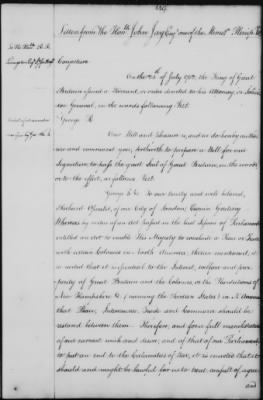 Letter from The Hon.ble John Jay Esq. one of the Minist. Plenip.
Competition
On the 25th of July 1782, the King of Great
Britain issued a Warrant, or order directed to his Attorney, or Solicitor
General, in the words following Viz.t
George R.
Our Will and Pleasure is, and we do hereby authorize
and command you, forthwith to prepare a Bill for our
Signature, to pass the great Seal of Great Britain, in the words
or to the effect, as follows Viz.t
George &c. To our trusty and well beloved,
Richard Oswald, of our City of London, Esquire Greeting
Whereas by virtue of an Act passed in the last Session of Parliament
entitled an Act to enable His Majesty to conclude a Peace or Truce
with certain Colonies in North America therein mentioned, it
is recited that it is essential to the Interest, welfare and pros-
perity of Great Britain and the Colonies, or the Plantations of
New Hampshire &c. (naming the Thirteen States) in A America
that Peace, Intercourse, Trade and Commerce should be
restored between them. Therefore, and for a full manifestation
of our earnest wish and desire, and of that of our Parliament
to put an end to the Calamities of War, it is enacted that it
should and might be lawful for us to treat, consult of, agree
and